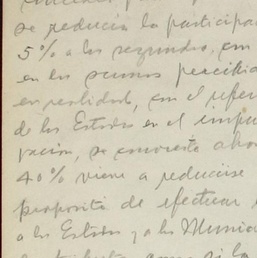 se reducía la participa
5% a los segundos, con
en las sumas percibida
en realidad, con el refer
de los Estados en el impu
vación, se convierte ahor
40% viene a reducirse
propósito de efectuar
a los Estados y a los Munic